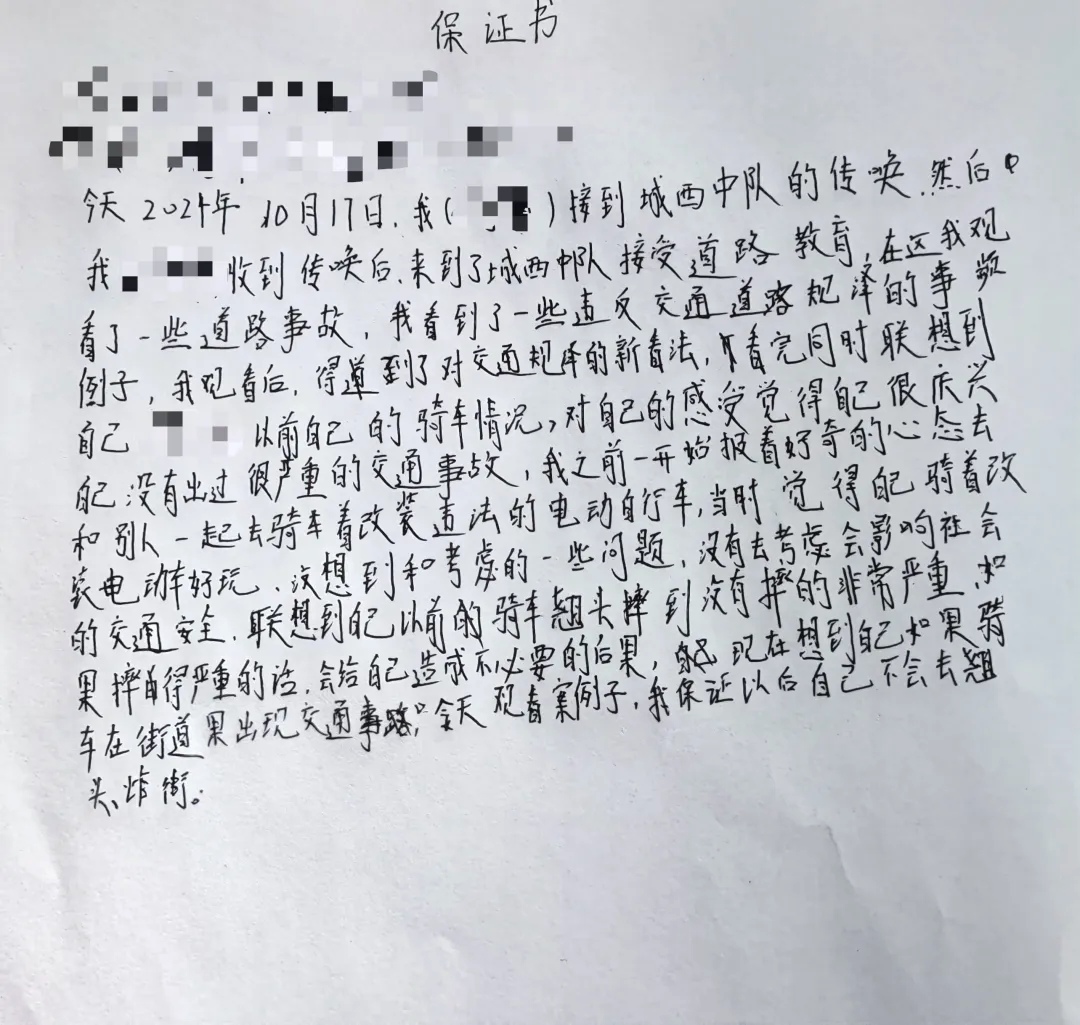 保证书
今天2024年10月17日,我( )接到城西中队的传唤.然后
我 收到传唤后,来到了城西中队接受道路教育,在这我观
看了一些道路事故,我看到了一些违反交通道路规泽的事
例子,我观看后,得道到了对交通规泽的新看法,看完同时联想到
自己 以前自己的骑车情况,对自己的感受觉得自己很庆兴
自己没有出过很严重的交通事故,我之前一开始报着好奇的心态去
和别人一起去骑车着改装违法的电动自行车,当时觉得自己骑着改
装电动车好玩、没想到和考虑的一些问题,没有去考虑会影响社会
的交通安全.联想到自己以前的骑车翘头摔到没有摔的非常严重,如
果摔得严重的话,会给自己造成不必要的后果,自己现在想到自己如果骑
车在街道果出现交通事路,今天观看案例子,我保证以后自己不会去翘
头、炸街。